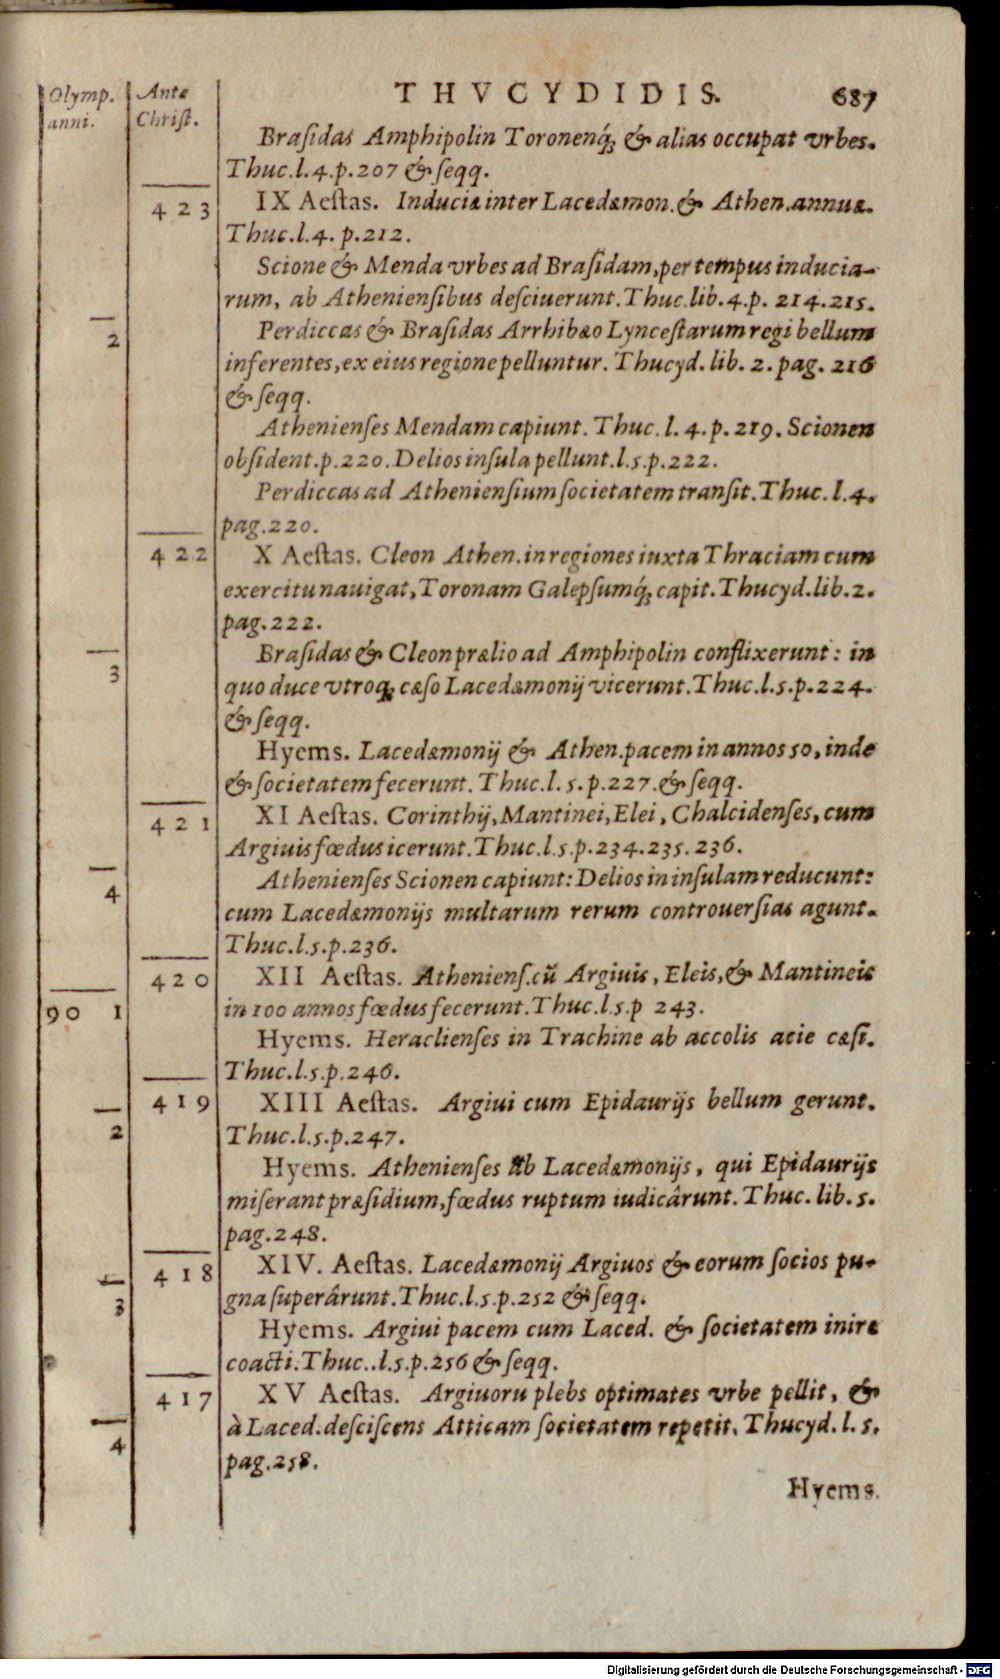 Olymp. anni.
Ante Christ.
THVCYDIDIS. 687
Braſidas Amphipolin Toronenq́; & alias occupat vrbes.
Thuc.l.4.p.207 & ſeqq.
423 IX Aeſtas. Induciæ inter Lacedæmon. & Athen. annuæ.
Thuc.l.4. p.212.
Scione & Menda vrbes ad Braſidam, per tempus inducia-
rum, ab Athenienſibus deſciuerunt. Thuc. lib. 4. p. 214. 215.
2 Perdiccas & Braſidas Arrhibæo Lynceſtarum regi bellum
inferentes, ex eius regione pelluntur. Thucyd. lib. 2. pag. 216
& ſeqq.
Athenienſes Mendam capiunt. Thuc. l. 4. p. 219. Scionen
obſident. p. 220. Delios inſula pellunt. l. 5. p. 222.
Perdiccas ad Athenienſium ſocietatem tranſit. Thuc. l. 4.
pag. 220.
422 X Aeſtas. Cleon Athen. in regiones iuxta Thraciam cum
exercitu nauigat, Toronam Galepſumq́; capit. Thucyd. lib. 2.
pag. 222.
3 Braſidas & Cleon prælio ad Amphipolin conflixerunt: in
quo duce vtroq; cæſo Lacedæmonij vicerunt. Thuc. l. 5. p. 224.
& ſeqq.
Hyems. Lacedæmonij & Athen. pacem in annos 50, inde
& ſocietatem fecerunt. Thuc. l. 5. p. 227. & ſeqq.
421 XI Aeſtas. Corinthij, Mantinei, Elei, Chalcidenſes, cum
Argiuis fœdus icerunt. Thuc. l. 5. p. 234. 235. 236.
4 Athenienſes Scionen capiunt: Delios in inſulam reducunt:
cum Lacedæmonijs multarum rerum controuerſias agunt.
Thuc. l. 5. p. 236.
420 XII Aeſtas. Athenienſ. cū Argiuis, Eleis, & Mantineis
90 1 in 100 annos fœdus fecerunt. Thuc. l. 5. p 243.
Hyems. Heraclienſes in Trachine ab accolis acie cæſi.
Thuc. l. 5. p. 246.
419 XIII Aeſtas. Argiui cum Epidaurijs bellum gerunt.
2 Thuc. l. 5. p. 247.
Hyems. Athenienſes ab Lacedæmonijs, qui Epidaurijs
miſerant præſidium, fœdus ruptum iudicârunt. Thuc. lib. 5.
pag. 248.
418 XIV. Aeſtas. Lacedæmonij Argiuos & eorum ſocios pu-
3 gna ſuperârunt. Thuc. l. 5. p. 252 & ſeqq.
Hyems. Argiui pacem cum Laced. & ſocietatem inire
coacti. Thuc. .l. 5. p. 256 & ſeqq.
417 XV Aeſtas. Argiuoru plebs optimates vrbe pellit, &
à Laced. deſciſcens Atticam ſocietatem repetit. Thucyd. l. 5.
4 pag. 258.
Hyems.
Digitalisierung gefördert durch die Deutsche Forschungsgemeinschaft - DFG